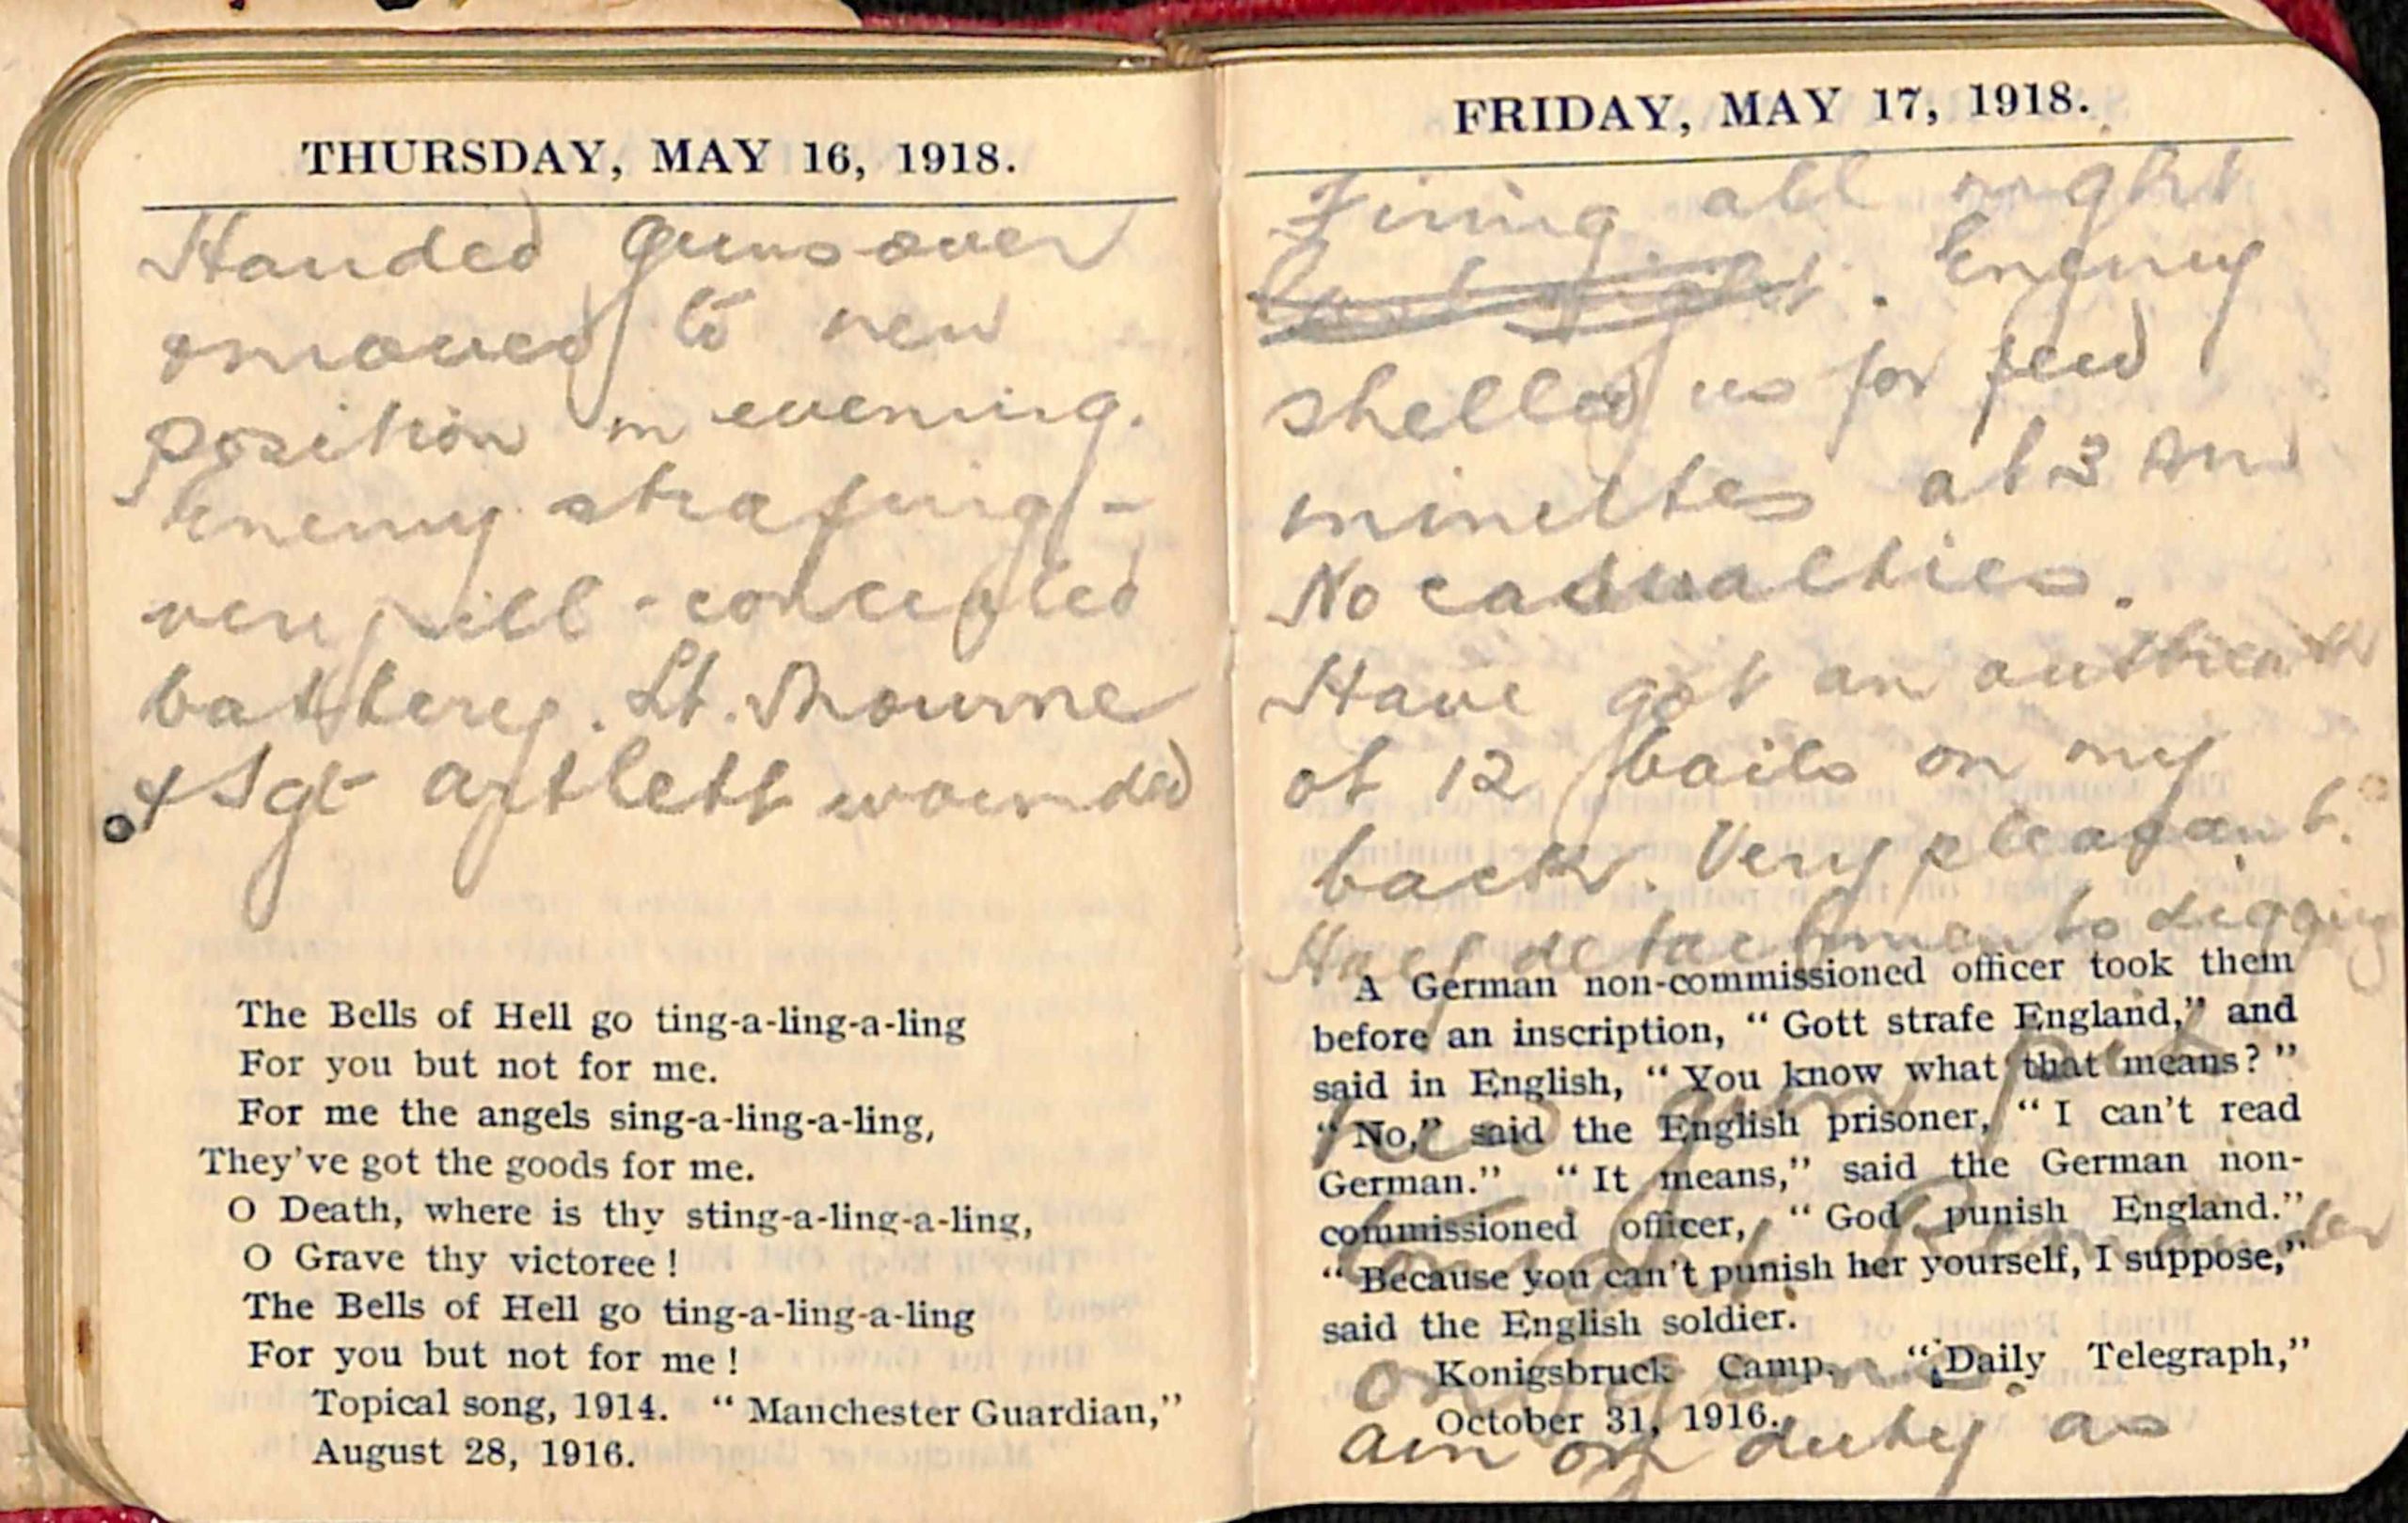 THURSDAY, MAY 16, 1918.
Handed guns over
& moved to new
position in evening.
Enemy strafing -
very ill-concealed
battery. Lt. Mourne
& Sgt Artlett wounded
The Bells of Hell go ting-a-ling-a-ling
For you but not for me.
For me the angels sing-a-ling-a-ling,
They've got the goods for me.
O Death, where is thy sting-a-ling-a-ling,
O Grave thy victoree !
The Bells of Hell go ting-a-ling-a-ling
For you but not for me !
Topical song, 1914. “ Manchester Guardian,”
August 28, 1916.
FRIDAY, MAY 17, 1918.
Firing all night
last night. Enemy
shelled us for few
minutes at 3 AM
No casualties.
Have got an
of 12 boils on my
back. Very pleasant.
Half detachments digging
new gun pit
tonight. Remainder
on guns.
am on duty as
A German non-commissioned officer took them
before an inscription, “ Gott strafe England,” and
said in English, “ You know what that means? ”
“ No,” said the English prisoner, “ I can't read
German.” “ It means,” said the German non-
commissioned officer, “ God punish England.”
“ Because you can't punish her yourself, I suppose,”
said the English soldier.
Konigsbruck Camp. “ Daily Telegraph,”
October 31, 1916.